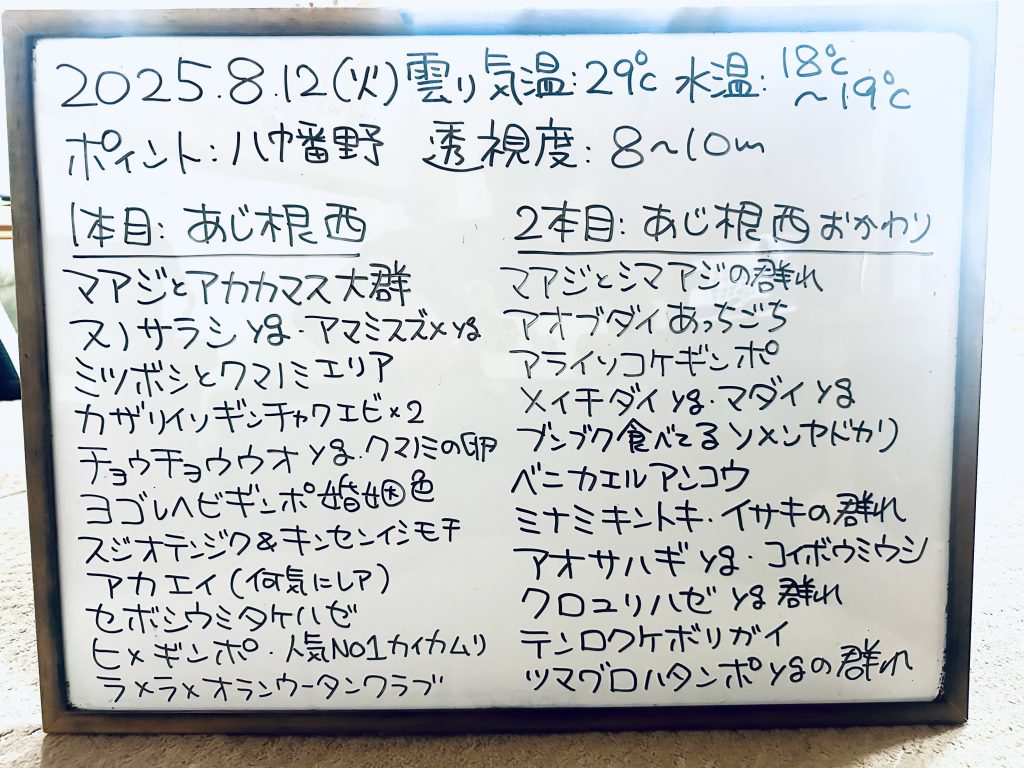 2025.8.12(火)雲り 気温:29℃ 水温:18℃〜19℃
ポイント:八幡野 透視度:8〜10m
1本目:あじ根西
マアジとアカカマス大群
ヌノサラシyg・アマミスズメyg
ミツボシとクマノミエリア
カザリイソギンチャクエビ×2
チョウチョウウオyg・クマノミの卵
ヨゴレヘビギンポ婚姻色
スジオテンジク&キンセンイシモチ
アカエイ(何気にレア)
セボシウミタケハゼ
ヒメギンポ・人気NO1カイカムリ
ラメラメオランウータンクラブ
2本目:あじ根西おかわり
マアジとシマアジの群れ
アオブダイあっちごち
アライソコケギンポ
メイチダイyg・マダイyg
ブンブク食べてるソメンヤドカリ
ベニカエルアンコウ
ミナミキントキ・イサキの群れ
アオサハギyg・コイボウミウシ
クロユリハゼyg群れ
テンロクケボリガイ
ツマグロハタンポygの群れ